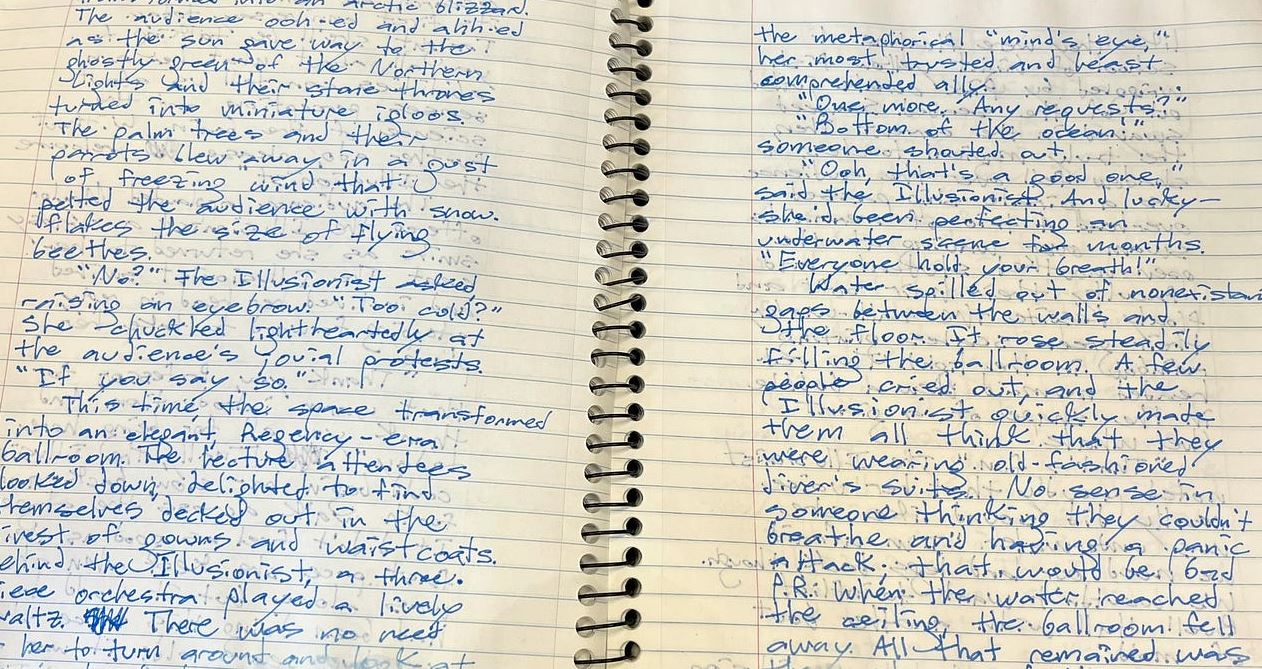 into an Arctic blizzard.
The audience ooh-ed and ahh-ed
as the sun gave way to the
ghostly green of the Northern
Lights and their stone thrones
turned into miniature igloos.
The palm trees and their
parrots blew away in a gust
of freezing wind that
pelted the audience with snow.
flakes the size of flying
beethes.
"No?" The Illusionist asked
raising an eyebrow. "Too cold?"
She chuckled lightheartedly at
the audience's jovial protests.
"If you say so."
This time the space transformed
into an elegant, Regency-era
ballroom. The lecture attendees
looked down, delighted to find
themselves decked out in the
inest of gowns and waistcoats.
ehind the Illusionist, a three-
iece orchestra played a lively
waltz. There was no need
her to turn around and look at
the metaphorical "mind's eye,"
her most trusted and least
comprehended ally.
"One more. Any requests?"
"Bottom of the ocean!"
someone shouted out.
"Ooh, that's a good one,"
said the Illusionist. And lucky-
she'd been perfecting an
underwater scene for months.
"Everyone hold your breath!"
Water spilled out of nonexistan
gaps between the walls and
the floor. It rose steadily
filling the ballroom. A few
people cried out, and the
Illusionist quickly made
them all think that they
were wearing old-fashioned
diver's suits. No sense in
someone thinking they couldn't
breathe and having a panic
attack; that would be bad
P.R. When the water reached
the ceiling, the ballroom fell
away. All that remained was